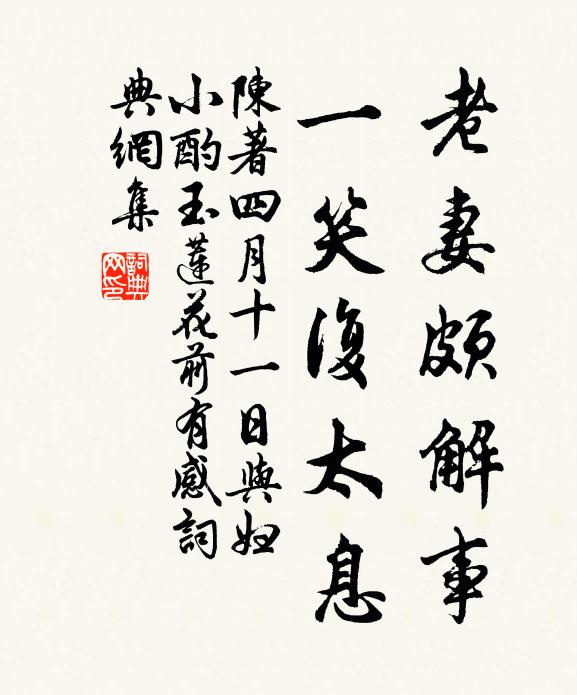 老妻頗解事
一笑復太息
陳著四月十一日與妲
小酌玉蓮花前有感詞
典網集
詞典網印